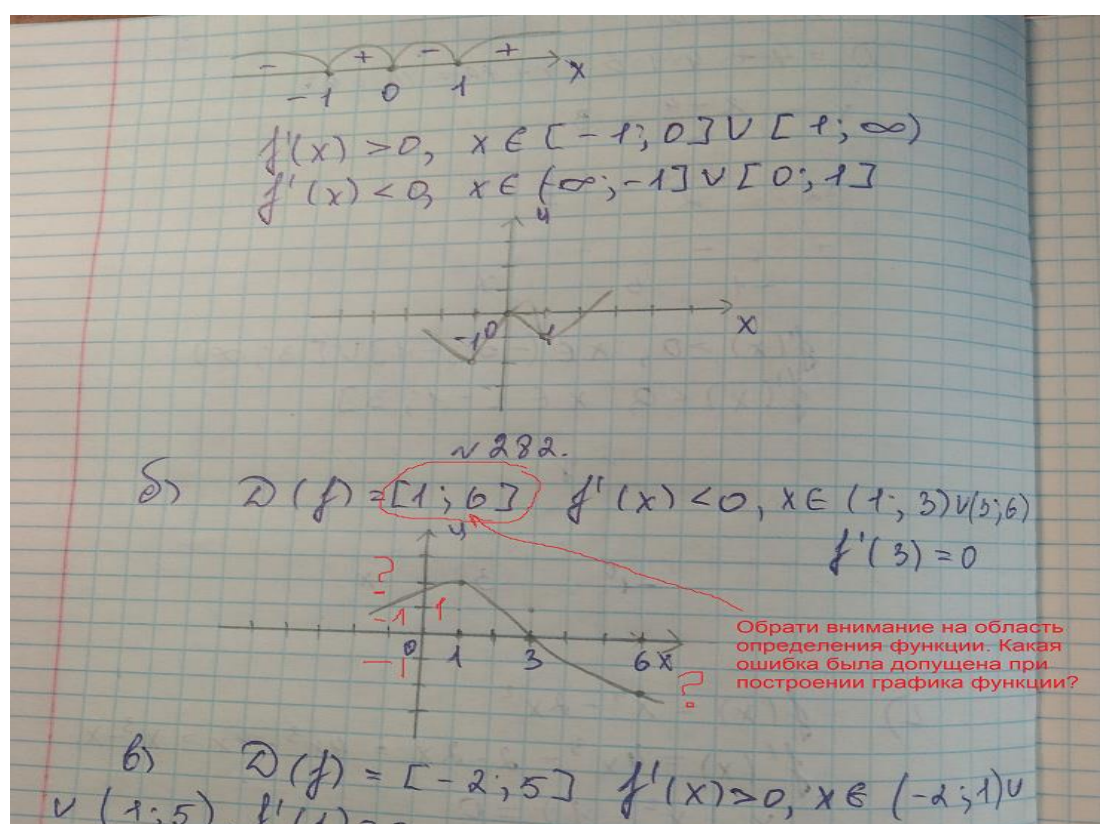 - + - + x
-1 0 1
f'(x) >0, x ∈ [-1; 0] ∪ [1; ∞)
f'(x) <0, x ∈ (∞; -1] ∪ [0; 1]
y
-1 0 1 x
№ 282.
б) D(f) = [1; 6] f'(x) <0, x ∈ (1; 3) ∪ (3; 6)
f'(3) = 0
y
?
-1 1
0 1 3 6 x
-1
?
Обрати внимание на область
определения функции. Какая
ошибка была допущена при
построении графика функции?
в) D(f) = [-2; 5] f'(x) >0, x ∈ (-2; 1) ∪
∪ (1; 5)